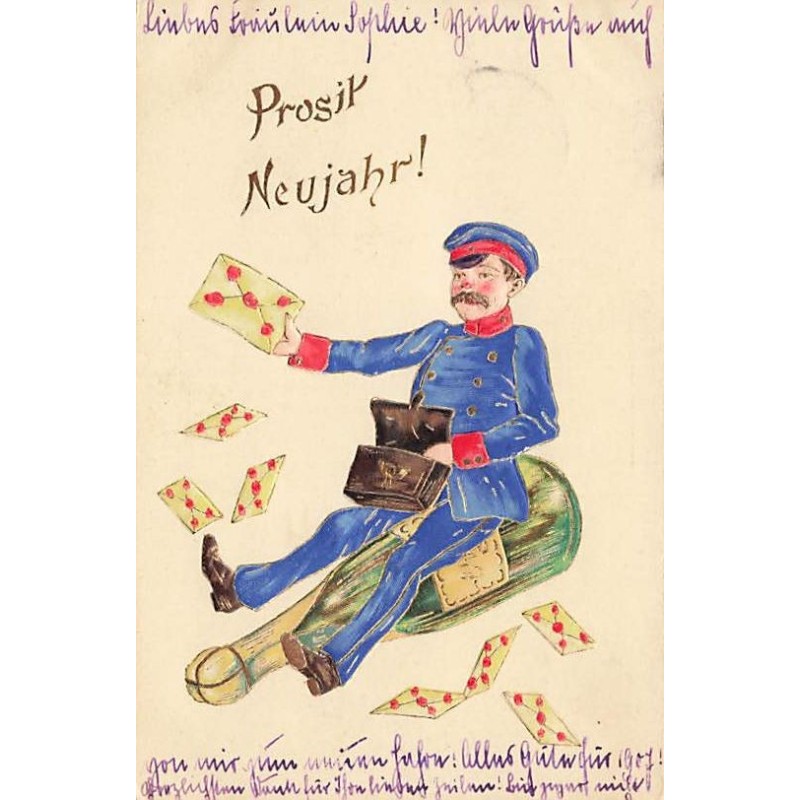 Liebes Fräulein Sophie! Viele Grüße auch
Prosit
Neujahr!
von mir zum neuen Jahre! Alles Gute für 1907!
Herzlichsten Dank für Ihre lieben Zeilen! Bin zwar nicht